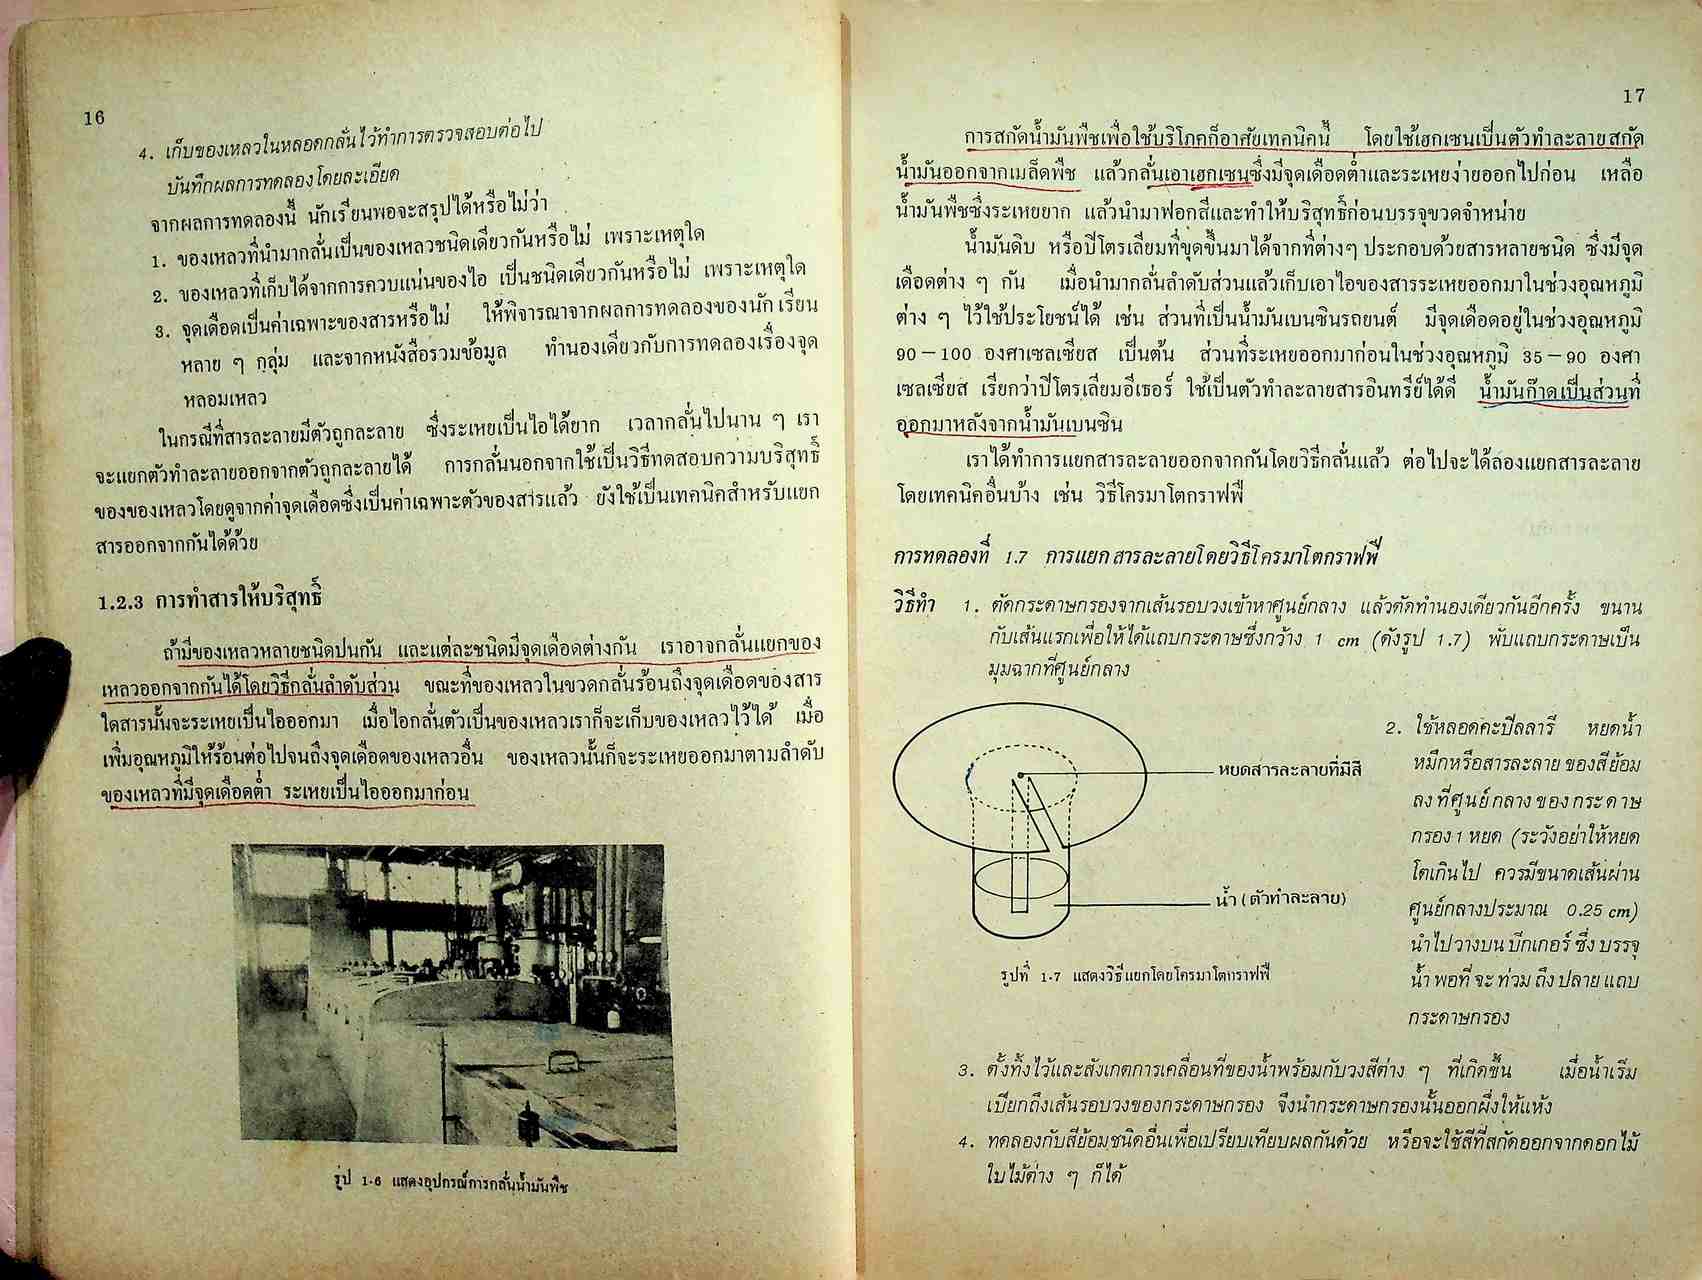 16
4. เก็บของเหลวในหลอดกลั่นไว้ทำการตรวจสอบต่อไป
บันทึกผลการทดลองโดยละเอียด
จากผลการทดลองนี้ นักเรียนพอจะสรุปได้หรือไม่ว่า
1. ของเหลวที่นำมากลั่นเป็นของเหลวชนิดเดียวกันหรือไม่ เพราะเหตุใด
2. ของเหลวที่เก็บได้จากการควบแน่นของไอ เป็นชนิดเดียวกันหรือไม่ เพราะเหตุใด
3. จุดเดือดเป็นค่าเฉพาะของสารหรือไม่ ให้พิจารณาจากผลการทดลองของนักเรียน
หลาย ๆ กลุ่ม และจากหนังสือรวมข้อมูล ทำนองเดียวกับการทดลองเรื่องจุด
หลอมเหลว
ในกรณีที่สารละลายมีตัวถูกละลาย ซึ่งระเหยเป็นไอได้ยาก เวลากลั่นไปนาน ๆ เรา
จะแยกตัวทำละลายออกจากตัวถูกละลายได้ การกลั่นนอกจากใช้เป็นวิธีทดสอบความบริสุทธิ์
ของของเหลวโดยดูจากค่าจุดเดือดซึ่งเป็นค่าเฉพาะตัวของสารแล้ว ยังใช้เป็นเทคนิคสำหรับแยก
สารออกจากกันได้ด้วย
1.2.3 การทำสารให้บริสุทธิ์
ถ้ามีของเหลวหลายชนิดปนกัน และแต่ละชนิดมีจุดเดือดต่างกัน เราอาจกลั่นแยกของ
เหลวออกจากกันได้โดยวิธีกลั่นลำดับส่วน ขณะที่ของเหลวในขวดกลั่นร้อนถึงจุดเดือดของสาร
ใดสารนั้นจะระเหยเป็นไอออกมา เมื่อไอกลั่นตัวเป็นของเหลวเราก็จะเก็บของเหลวไว้ได้ เมื่อ
เพิ่มอุณหภูมิให้ร้อนต่อไปจนถึงจุดเดือดของเหลวอื่น ของเหลวนั้นก็จะระเหยออกมาตามลำดับ
ของเหลวที่มีจุดเดือดต่ำ ระเหยเป็นไอออกมาก่อน
รูป 1-6 แสดงอุปกรณ์การกลั่นน้ำมันพืช
17
การสกัดน้ำมันพืชเพื่อใช้บริโภคก็อาศัยเทคนิคนี้ โดยใช้เฮกเซนเป็นตัวทำละลายสกัด
น้ำมันออกจากเมล็ดพืช แล้วกลั่นเอาเฮกเซนซึ่งมีจุดเดือดต่ำและระเหยง่ายออกไปก่อน เหลือ
น้ำมันพืชซึ่งระเหยยาก แล้วนำมาฟอกสีและทำให้บริสุทธิ์ก่อนบรรจุขวดจำหน่าย
น้ำมันดิบ หรือปิโตรเลียมที่ขุดขึ้นมาได้จากที่ต่างๆ ประกอบด้วยสารหลายชนิด ซึ่งมีจุด
เดือดต่าง ๆ กัน เมื่อนำมากลั่นลำดับส่วนแล้วเก็บเอาไอของสารระเหยออกมาในช่วงอุณหภูมิ
ต่าง ๆ ไว้ใช้ประโยชน์ได้ เช่น ส่วนที่เป็นน้ำมันเบนซินรถยนต์ มีจุดเดือดอยู่ในช่วงอุณหภูมิ
90 – 100 องศาเซลเซียส เป็นต้น ส่วนที่ระเหยออกมาก่อนในช่วงอุณหภูมิ 35 – 90 องศา
เซลเซียส เรียกว่าปิโตรเลียมอีเธอร์ ใช้เป็นตัวทำละลายสารอินทรีย์ได้ดี น้ำมันก๊าดเป็นส่วนที่
ออกมาหลังจากน้ำมันเบนซิน
เราได้ทำการแยกสารละลายออกจากกันโดยวิธีกลั่นแล้ว ต่อไปจะได้ลองแยกสารละลาย
โดยเทคนิคอื่นบ้าง เช่น วิธีโครมาโตกราฟฟี่
การทดลองที่ 1.7 การแยกสารละลายโดยวิธีโครมาโตกราฟฟี่
วิธีทำ 1. ตัดกระดาษกรองจากเส้นรอบวงเข้าหาศูนย์กลาง แล้วตัดทำนองเดียวกันอีกครั้ง ขนาน
กับเส้นแรกเพื่อให้ได้แถบกระดาษซึ่งกว้าง 1 cm (ดังรูป 1.7) พับแถบกระดาษเป็น
มุมฉากที่ศูนย์กลาง
หยดสารละลายที่มีสี
น้ำ (ตัวทำละลาย)
รูปที่ 1-7 แสดงวิธีแยกโดยโครมาโตกราฟฟี่
2. ใช้หลอดคะปิลลารี หยดน้ำ
หมึกหรือสารละลายของสีย้อม
ลงที่ศูนย์กลางของกระดาษ
กรอง 1 หยด (ระวังอย่าให้หยด
โตเกินไป ควรมีขนาดเส้นผ่าน
ศูนย์กลางประมาณ 0.25 cm)
นำไปวางบนบีกเกอร์ซึ่งบรรจุ
น้ำพอที่จะท่วมถึงปลายแถบ
กระดาษกรอง
3. ตั้งทิ้งไว้และสังเกตการเคลื่อนที่ของน้ำพร้อมกับวงสีต่าง ๆ ที่เกิดขึ้น เมื่อน้ำเริ่ม
เปียกถึงเส้นรอบวงของกระดาษกรอง จึงนำกระดาษกรองนั้นออกผึ่งให้แห้ง
4. ทดลองกับสีย้อมชนิดอื่นเพื่อเปรียบเทียบผลกันด้วย หรือจะใช้สีที่สกัดออกจากดอกไม้
ใบไม้ต่าง ๆ ก็ได้